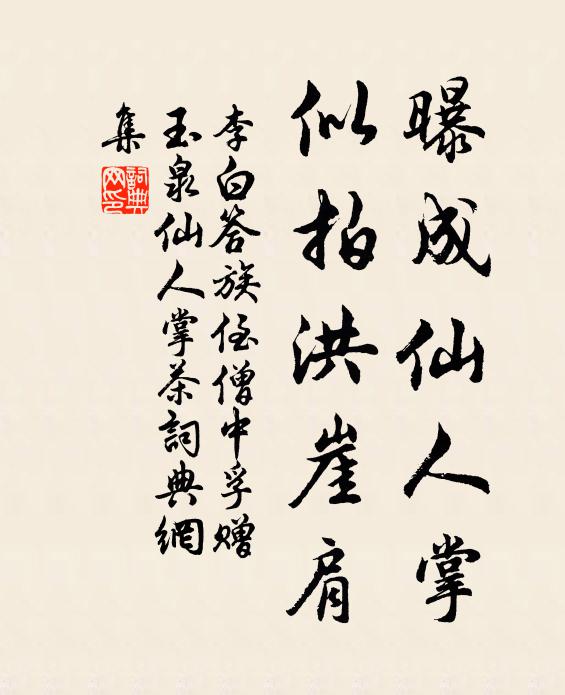 曝成仙人掌
似拍洪崖肩
李白答族侄僧中孚赠
玉泉仙人掌茶詞典網
集
詞典
网印